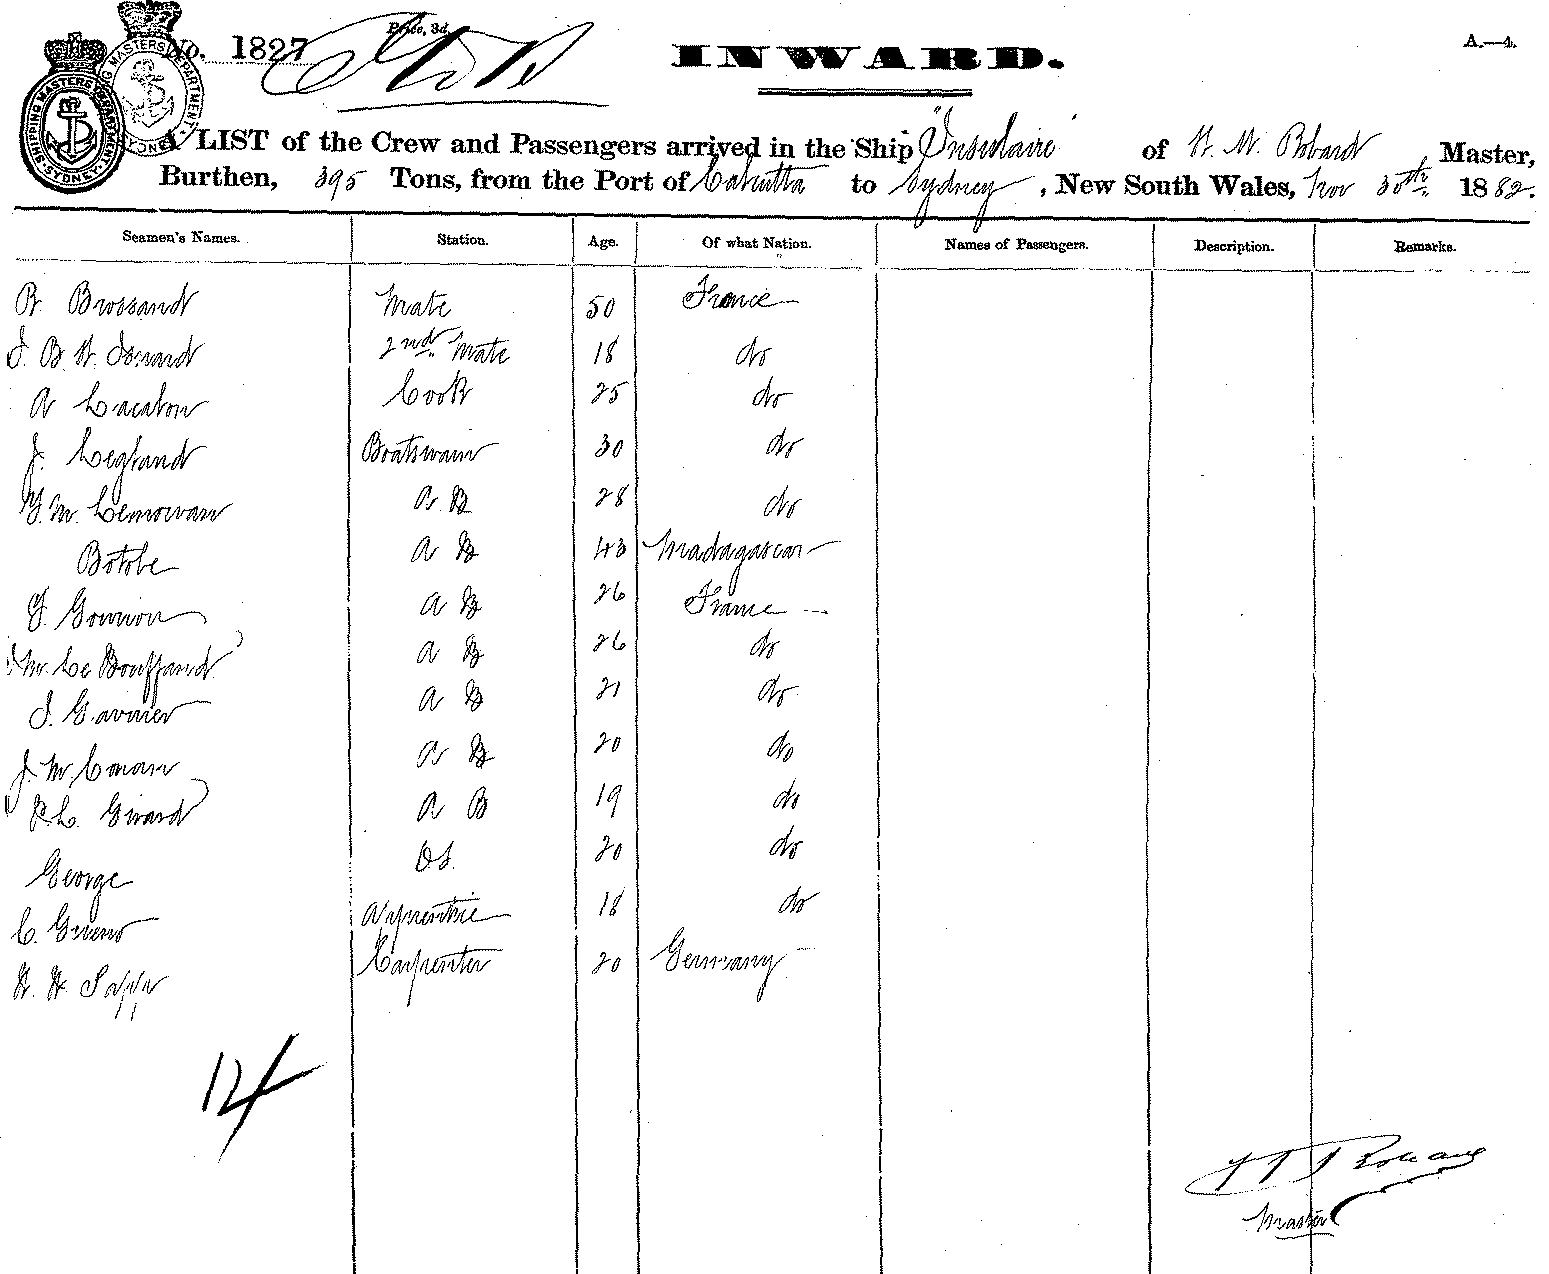 No. 1827
Price, 3d.
INWARD.
A.—4.
SHIPPING MASTERS DEPARTMENT SYDNEY
A LIST of the Crew and Passengers arrived in the Ship "Insulaire" of Master,
Burthen, 395 Tons, from the Port of Calcutta to Sydney, New South Wales, Nov 30th 1882.
Seamen's Names. Station. Age. Of what Nation. Names of Passengers. Description. Remarks.
Brossand Mate 50 France
2nd Mate 18 do
A Lacaton Cook 25 do
J. Legland Boatswain 30 do
Y. M. Lemowan A B 28 do
Botobe A B 43 Madagascar
A B 26 France
M. Le Bouffand A B 26 do
J. Garnier A B 21 do
J. M. Conan A B 20 do
L. Girard A B 19 do
George OS. 20 do
C. Apprentice 18 do
Carpenter 20 Germany
14
Master